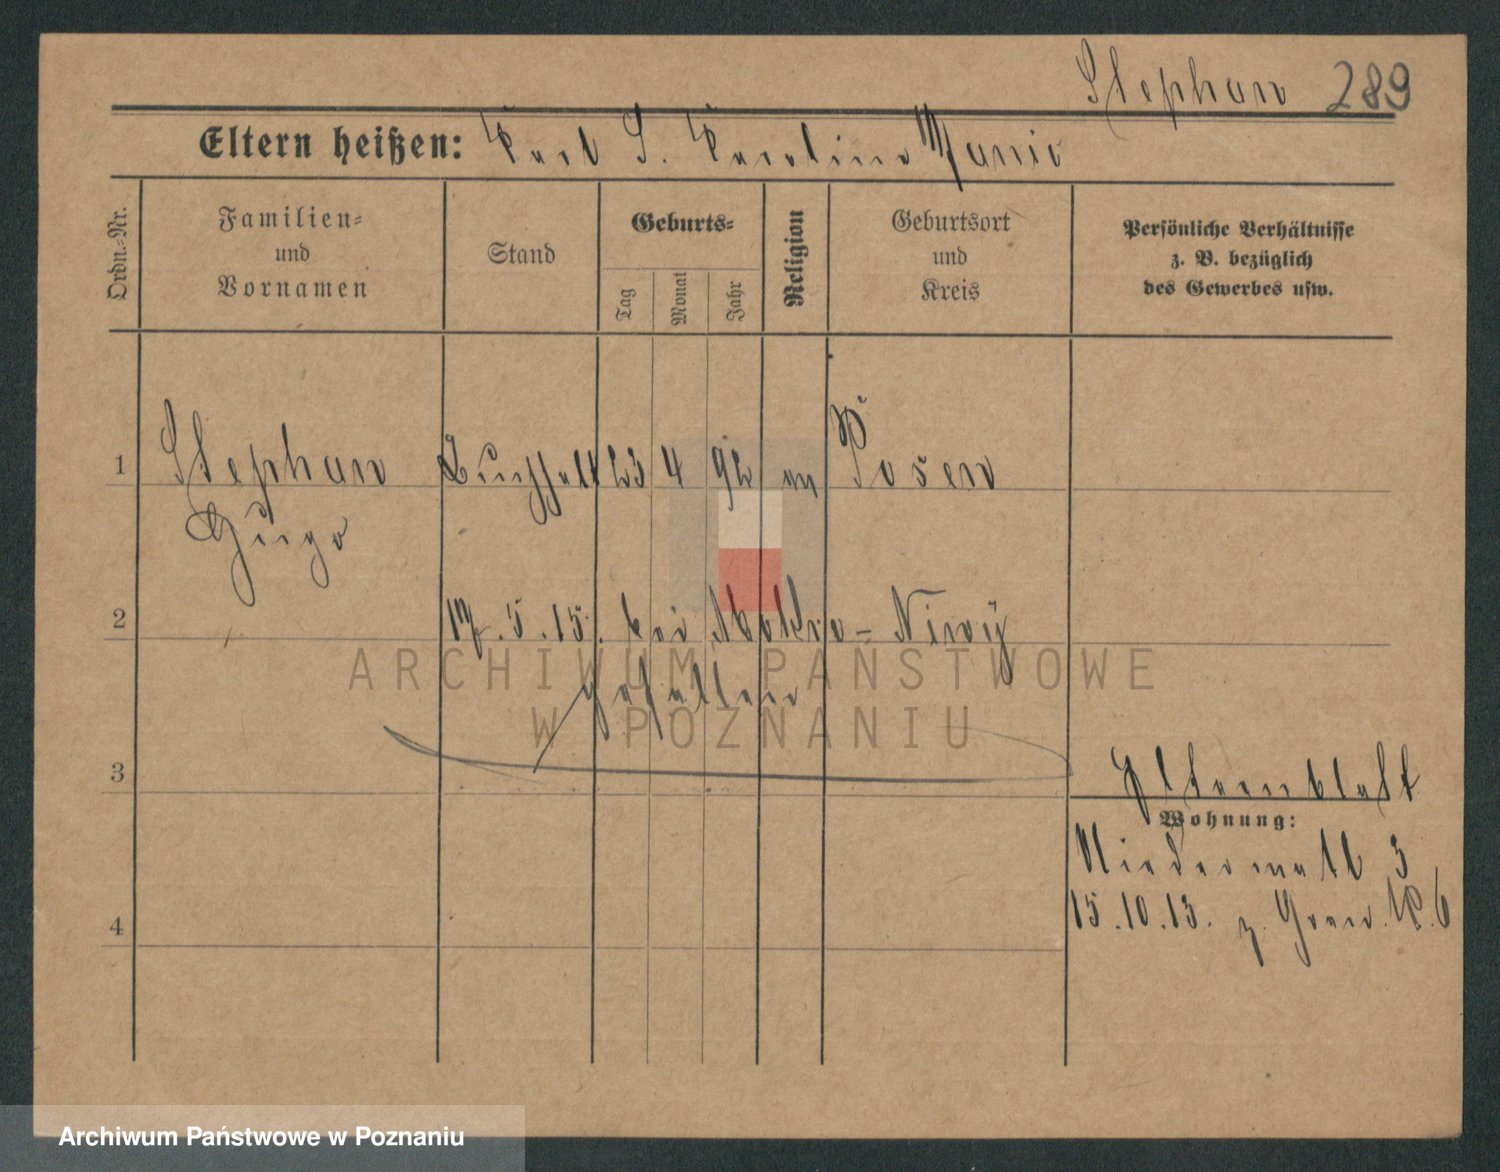 Stephan 289
Eltern heißen: Karl S. Karoline Manic
Ordn.-Nr.
Familien-
und
Vornamen
Stand
Geburts-
Tag
Monat
Jahr
Religion
Geburtsort
und
Kreis
Persönliche Verhältnisse
z. B. bezüglich
des Gewerbes usw.
1 Stephan Buchhalt 23 4 92 Posen
Hugo
2 17.5.15. bei Mokre-Niwy
gefallen
3
Elternblatt
Wohnung:
Niederwall 3
15.10.13. z. Gren. R. 6
4
ARCHIWUM PAŃSTWOWE
W POZNANIU
Archiwum Państwowe w Poznaniu